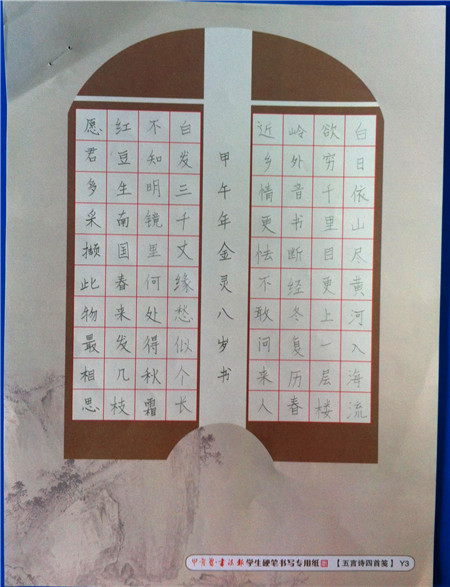 白日依山尽黄河入海流
欲穷千里目更上一层楼
岭外音书断经冬复历春
近乡情更怯不敢问来人
甲午年金灵八岁书
白发三千丈缘愁似个长
不知明镜里何处得秋霜
红豆生南国春来发几枝
愿君多采撷此物最相思
学生硬笔书写专用纸 【五言诗四首笺】 Y3